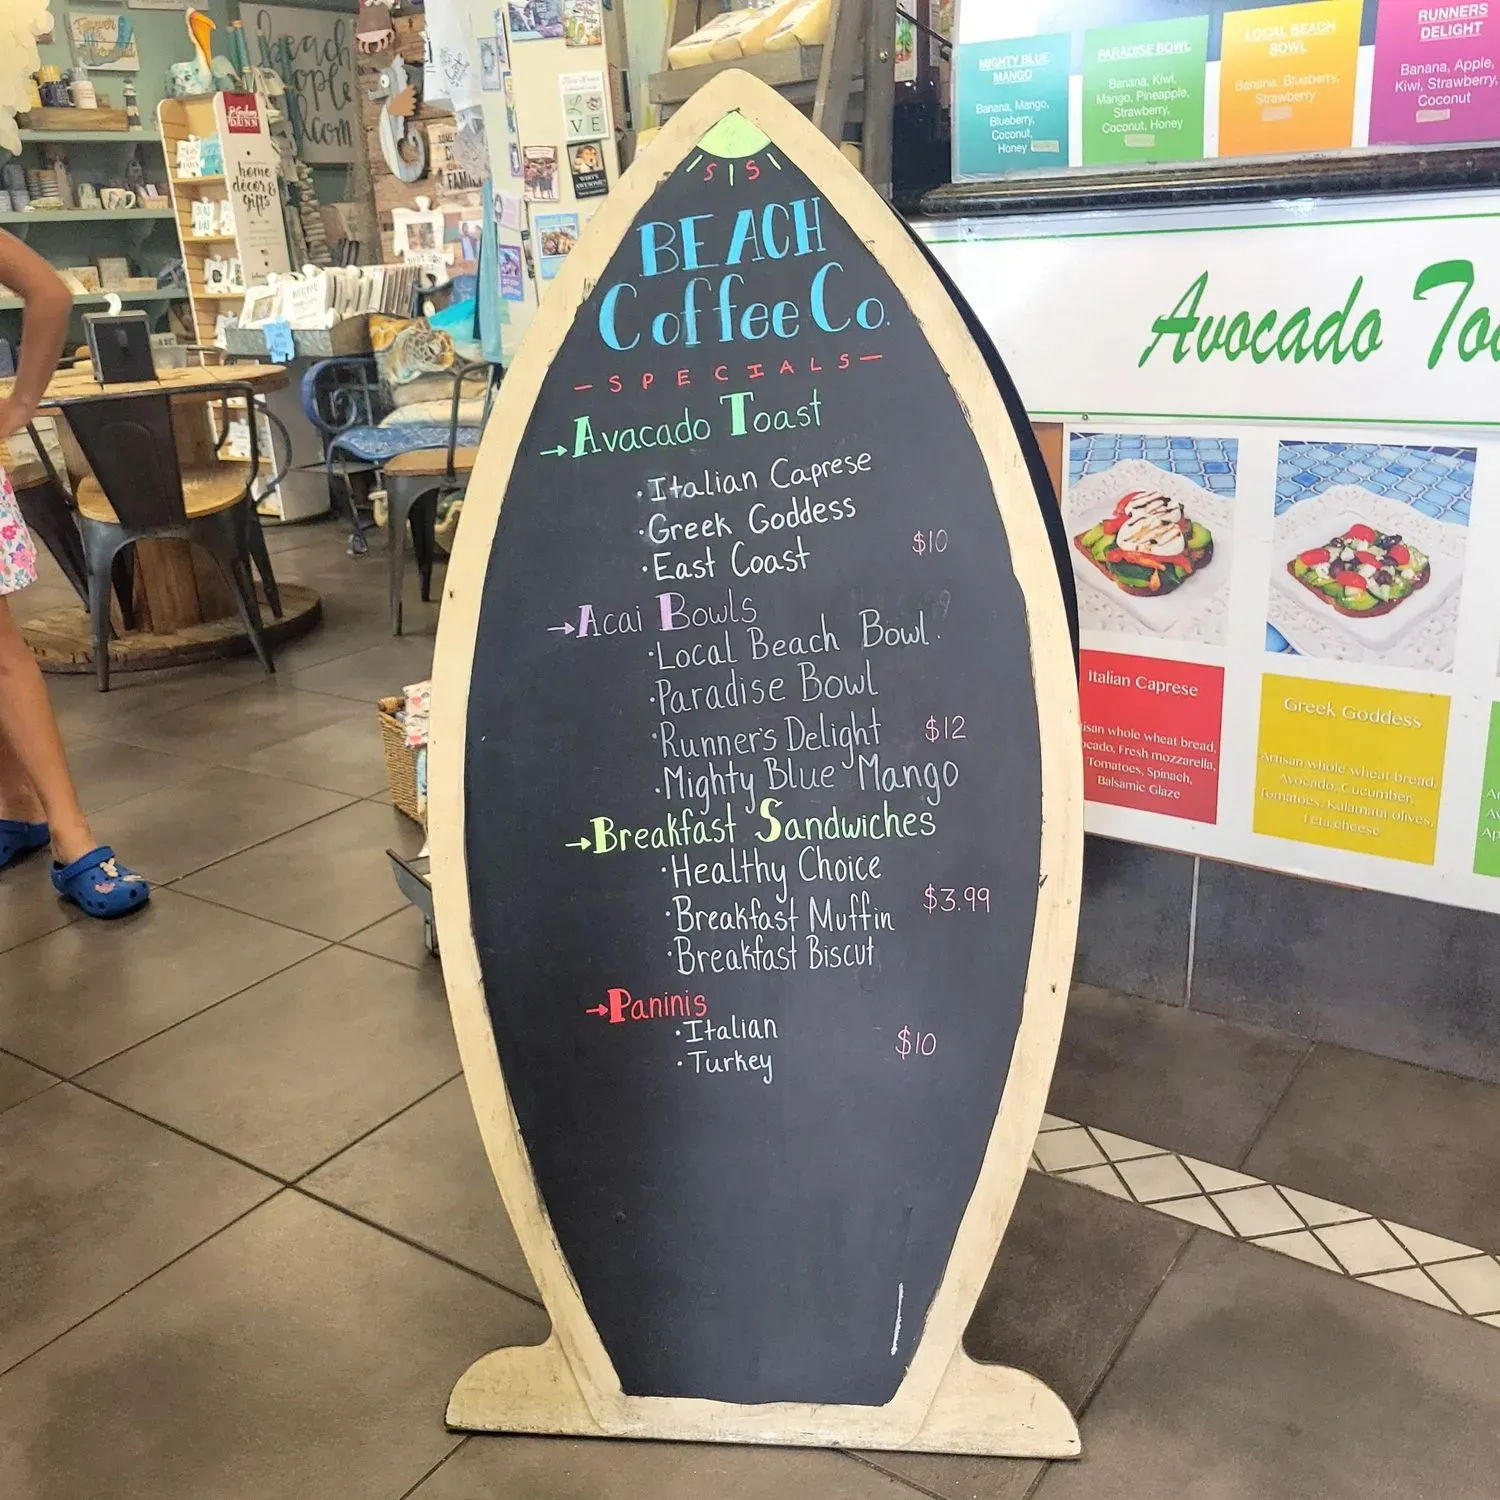 SIS
BEACH
Coffee Co.
- SPECIALS -
→Avacado Toast
·Italian Caprese
·Greek Goddess
·East Coast $10
→Acai Bowls
·Local Beach Bowl.
·Paradise Bowl
·Runner's Delight $12
·Mighty Blue Mango
→Breakfast Sandwiches
·Healthy Choice
·Breakfast Muffin $3.99
·Breakfast Biscut
→Paninis
·Italian $10
·Turkey
MIGHTY BLUE
MANGO
Banana, Mango,
Blueberry,
Coconut,
Honey
PARADISE BOWL
Banana, Kiwi,
Mango, Pineapple,
Strawberry,
Coconut, Honey
LOCAL BEACH
BOWL
Banana, Blueberry,
Strawberry
RUNNERS
DELIGHT
Banana, Apple,
Kiwi, Strawberry,
Coconut
Avocado To
Italian Caprese
isan whole wheat bread,
ocado, Fresh mozzarella,
Tomatoes, Spinach,
Balsamic Glaze
Greek Goddess
Artisan whole wheat bread,
Avocado, Cucumber,
Tomatoes, Kalamata olives,
Feta cheese
Ar
Av
Ap
beach
people
.com
home
decor &
gifts